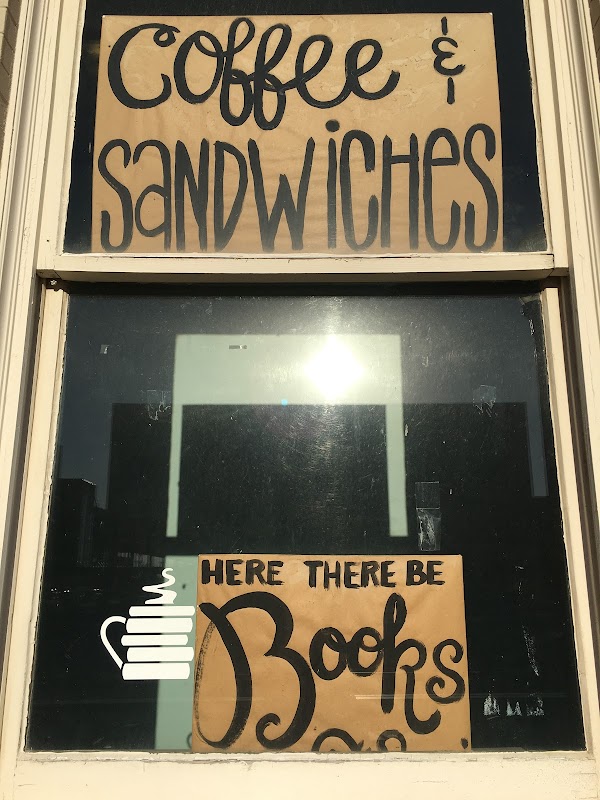 Coffee &
SANDWiCHeS
HERE THERE BE
Books